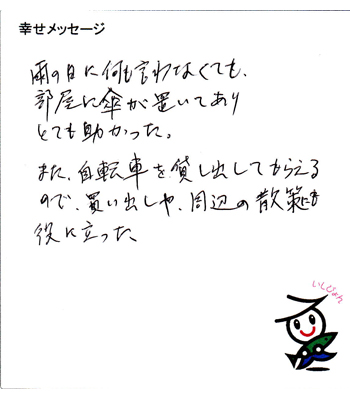 幸せメッセージ
雨の日に何も言わなくても、
部屋に傘が置いてあり
とても助かった。
また、自転車を貸し出してもらえる
ので、買い出しや、周辺の散策にも
役に立った。
いしじょん